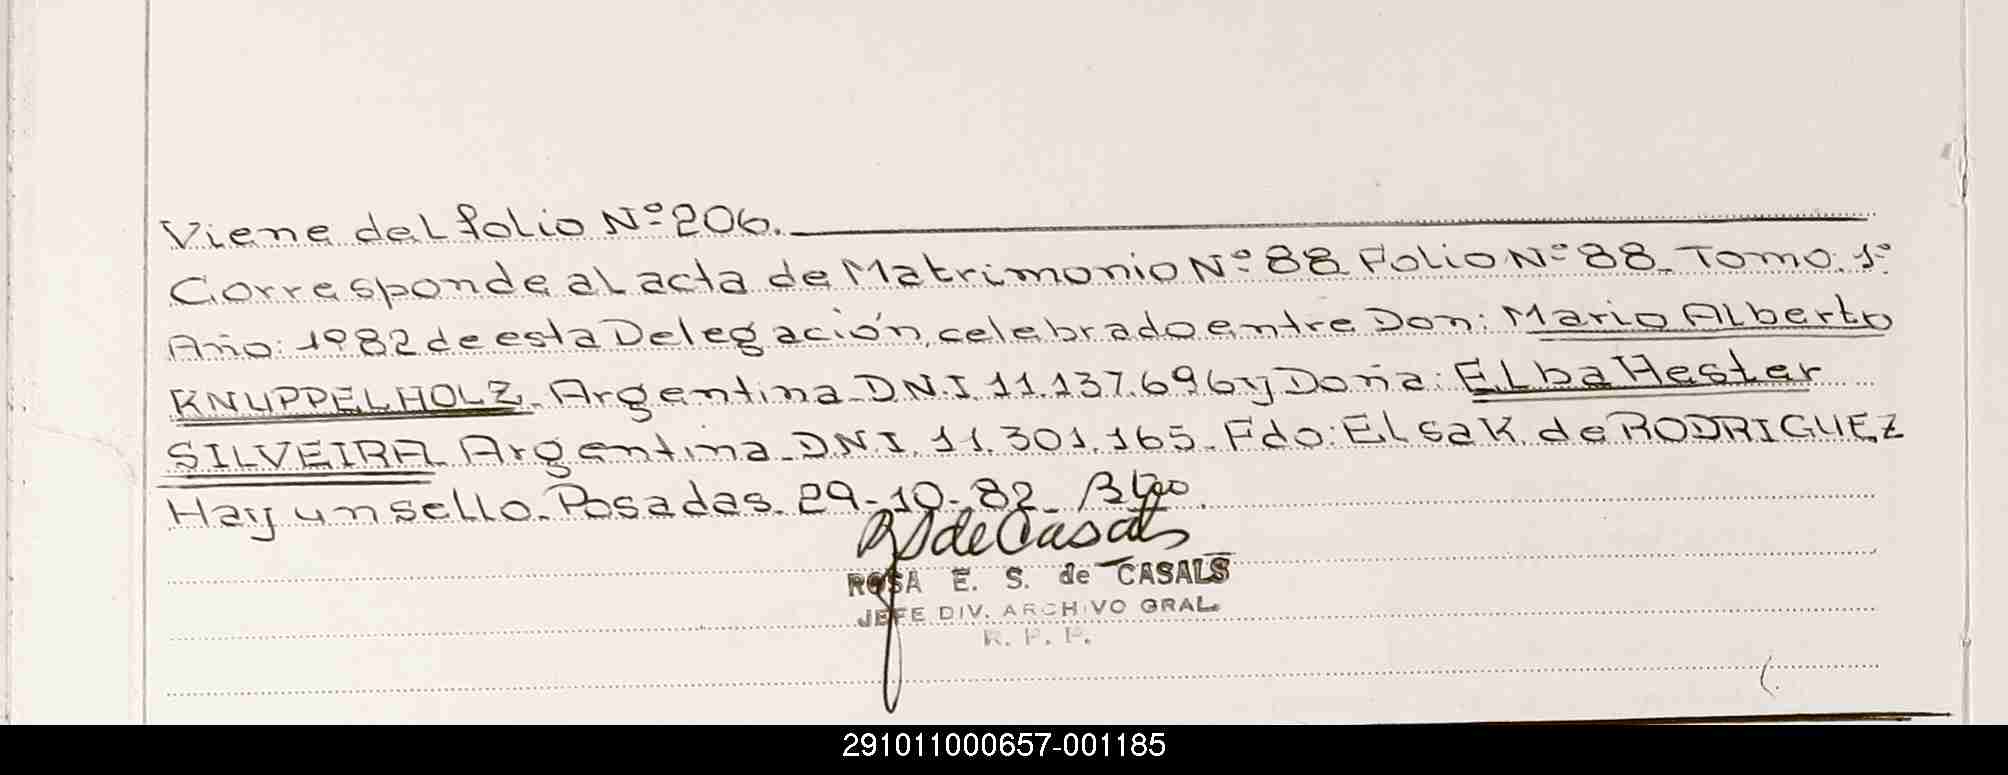 Viene del folio Nº 206.
Corresponde al acta de Matrimonio Nº 88 Folio Nº 88. Tomo: 1º
Año: 1982 de esta Delegación, celebrado entre Don: Mario Alberto
KNUPPELHOLZ. Argentina. D.N.I. 11.137.696 y Doña: Elba Hester
SILVEIRA. Argentina. D.N.I. 11.301.165. Fdo: Elsa K. de RODRIGUEZ
Hay un sello. Posadas. 29-10-82.
de Casals
ROSA E. S. de CASALS
JEFE DIV. ARCHIVO GRAL.
R. P. P.
291011000657-001185